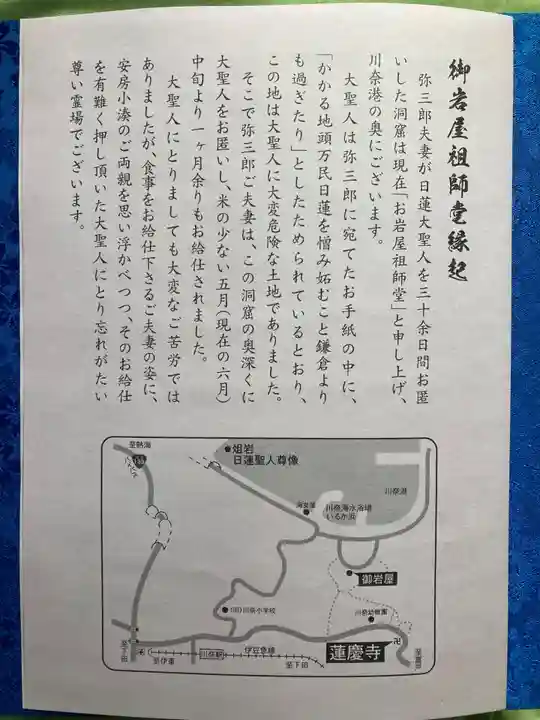 御岩屋祖師堂縁起
弥三郎夫妻が日蓮大聖人を三十余日間お匿
いした洞窟は現在「お岩屋祖師堂」と申し上げ、
川奈港の奥にございます。
大聖人は弥三郎に宛てたお手紙の中に、
「かかる地頭万民日蓮を憎み妬むこと鎌倉より
も過ぎたり」としたためられているとおり、
この地は大聖人に大変危険な土地でありました。
そこで弥三郎ご夫妻は、この洞窟の奥深くに
大聖人をお匿いし、米の少ない五月(現在の六月)
中旬より一ヶ月余りもお給仕されました。
大聖人にとりましても大変なご苦労では
ありましたが、食事をお給仕下さるご夫妻の姿に、
安房小湊のご両親を思い浮かべつつ、そのお給仕
を有難く押し頂いた大聖人にとり忘れがたい
尊い霊場でございます。
至熱海
135
バイパス
俎岩
日蓮聖人尊像
川奈港
海女屋
川奈海水浴場
いるか浜
御岩屋
(旧)川奈小学校
川奈幼稚園
蓮慶寺
卍
至下田
至伊東
川奈駅
伊豆急線
至下田